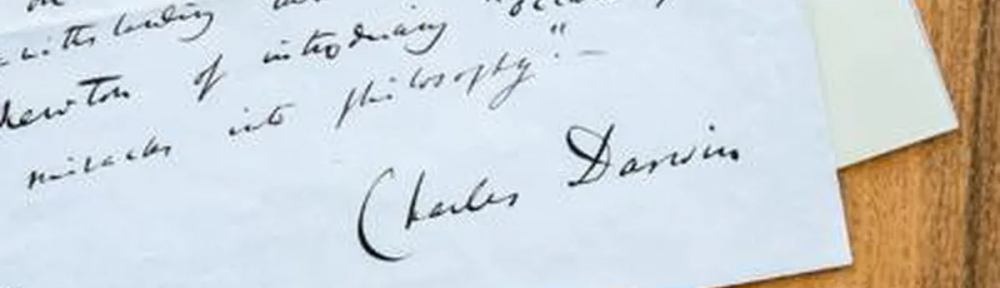 withstanding
Newton of introducing "occult
miracles into philosophy." —
Charles Darwin